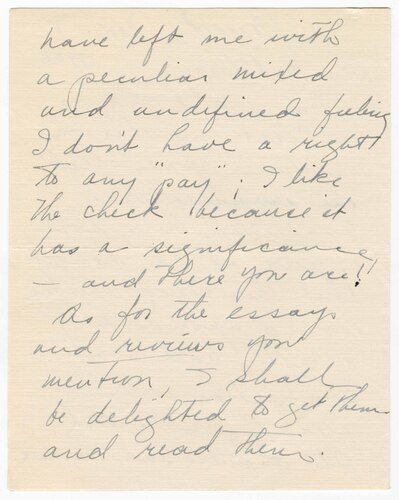 have left me with
a peculiar mixed
and undefined feeling
I don't have a right
to any "pay"; I like
the check because it
has a significance,
— and there you are!!
As for the essays
and reviews you
mention, I shall
be delighted to get them
and read them.